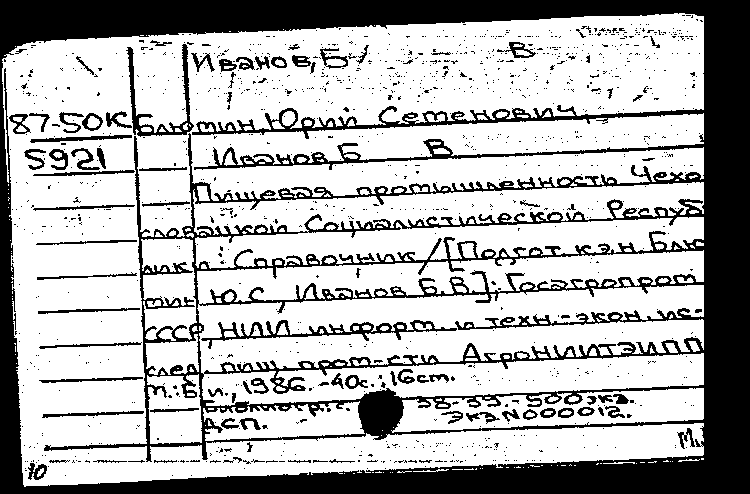 Иванов, Б В
87-50К Блютин, Юрий Сетенович,
5921 Иванов, Б В
Пищевая промышленность Чехо
словацкой Социалистической Респуб
лики: Справочник / [Подгот. к.э.н. Блю
тин Ю.С., Иванов Б.В.]; Госагропром
СССР, НИИ информ. и техн.-экон. ис-
след. пищ. пром-сти АгроНИИТЭИПП
М.: Б. и., 1986. -40с.; 16ст.
Библиогр.: с. 38-39. - 500 экз.
ДСП. Экз N000012.
10